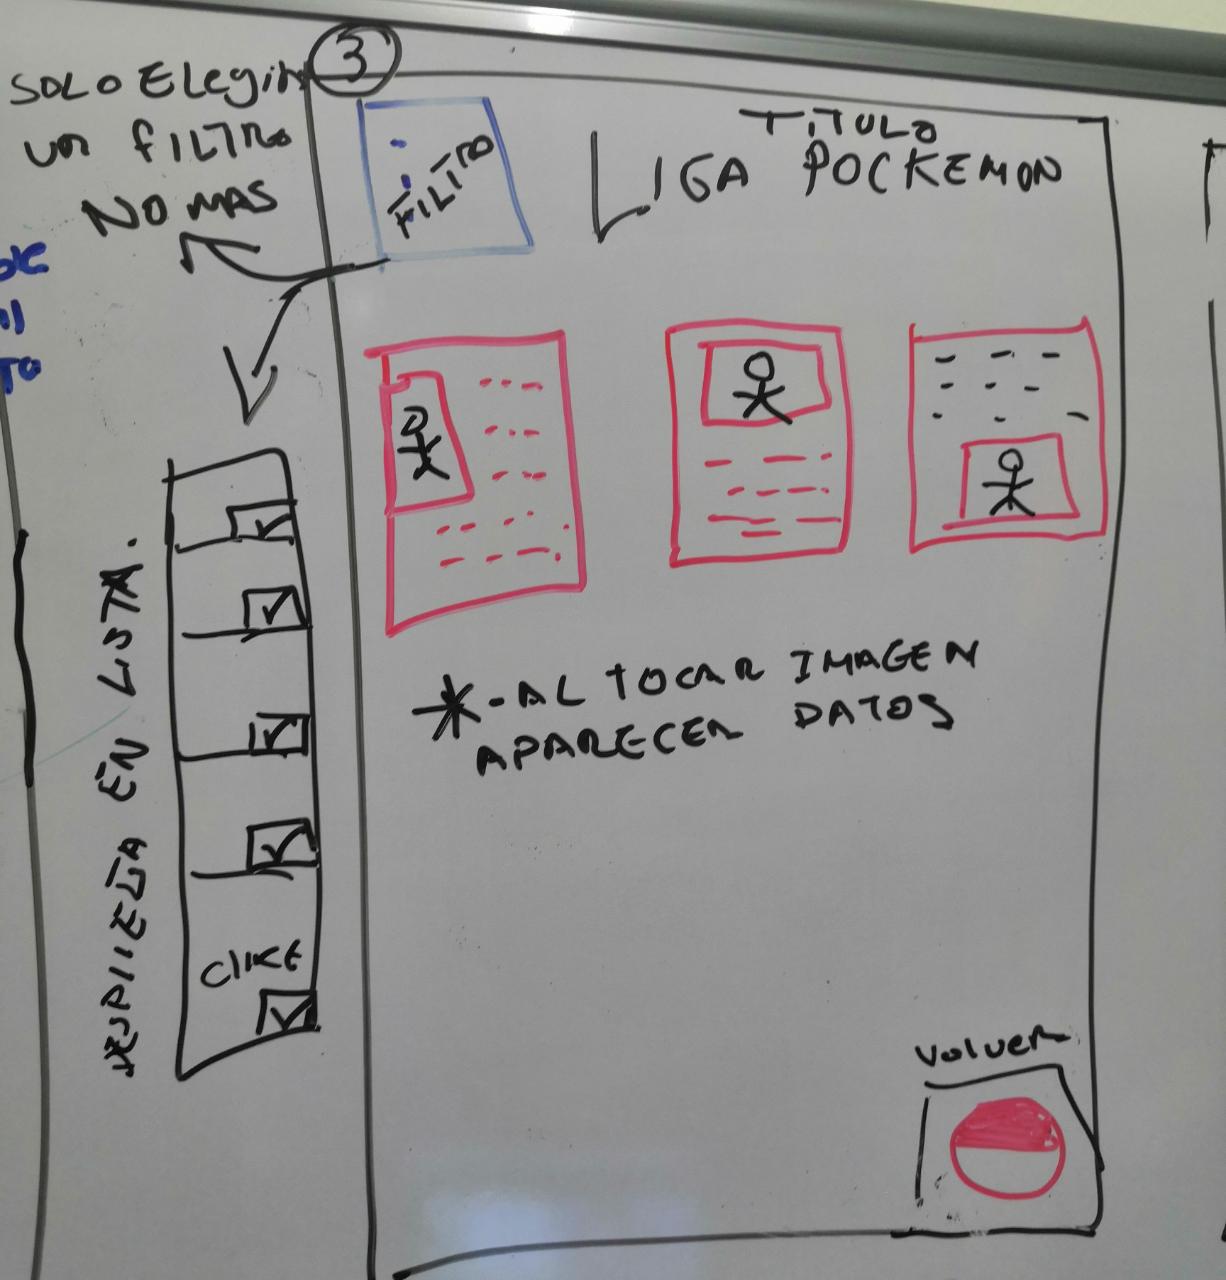 3
SOLO ElegiR
un FILTRO
NO MAS
FILTRO
TITULO
LIGA POCKEMON
DESPLIEGA EN LISTA.
CLIKE
*-AL TOCAR IMAGEN
APARECER DATOS
Volver